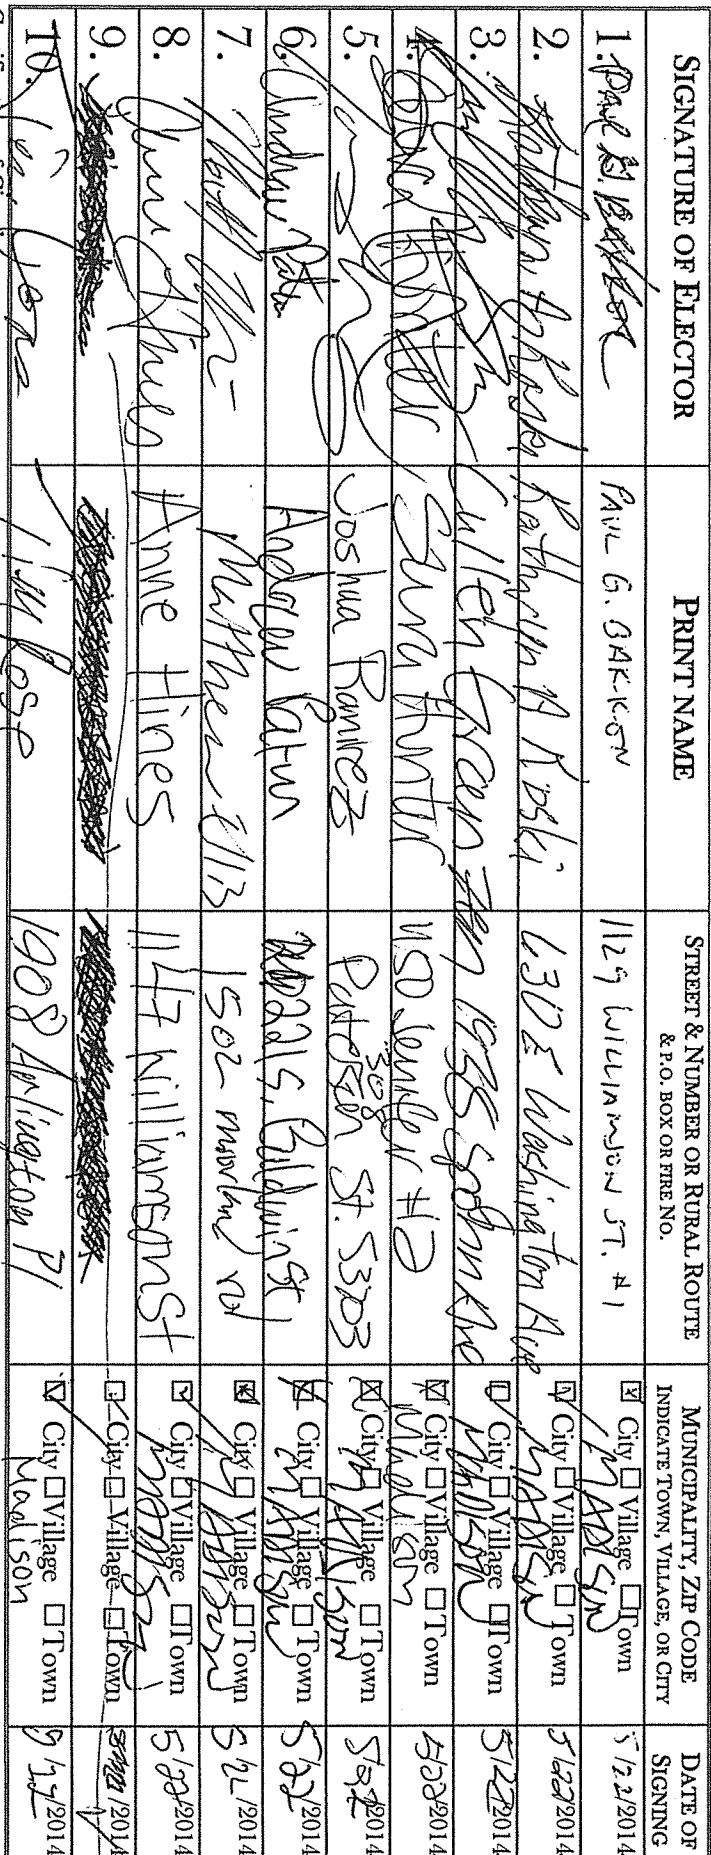 SIGNATURE OF ELECTOR PRINT NAME STREET & NUMBER OR RURAL ROUTE MUNICIPALITY, ZIP CODE DATE OF
& P.O. BOX OR FIRE NO. INDICATE TOWN, VILLAGE, OR CITY SIGNING
1. Paul G. Bakken PAUL G. BAKKEN 1129 WILLIAMSON ST. #1 ☒ City ☐ Village ☐ Town MADISON 5/22/2014
2. Kathryn A Koski Kathryn A Koski 630 E Washington Ave ☑ City ☐ Village ☐ Town MADISON 5/22/2014
3. Cullen Green 1935 Ave City ☐ Village ☐ Town Madison 5/22/2014
4. Sara Hunter Sara Hunter 1150 #12 ☒ City ☐ Village ☐ Town Madison 5/22/2014
5. Joshua Ramirez 308 Paterson St. 53703 ☒ City ☐ Village ☐ Town MADISON 5/22/2014
6. Andrew Andrew 221 S. Baldwin St, ☒ City ☐ Village ☐ Town MADISON 5/22/2014
7. Matthew 1502 rd ☒ City ☐ Village ☐ Town MADISON 5/22/2014
8. Anne Hines Anne Hines 1147 Williamson St ☑ City ☐ Village ☐ Town MADISON 5/22/2014
9. City ☐ Village ☐ Town /2014
10. Lily Rose 1908 Arlington Pl ☑ City ☐ Village ☐ Town Madison /2014